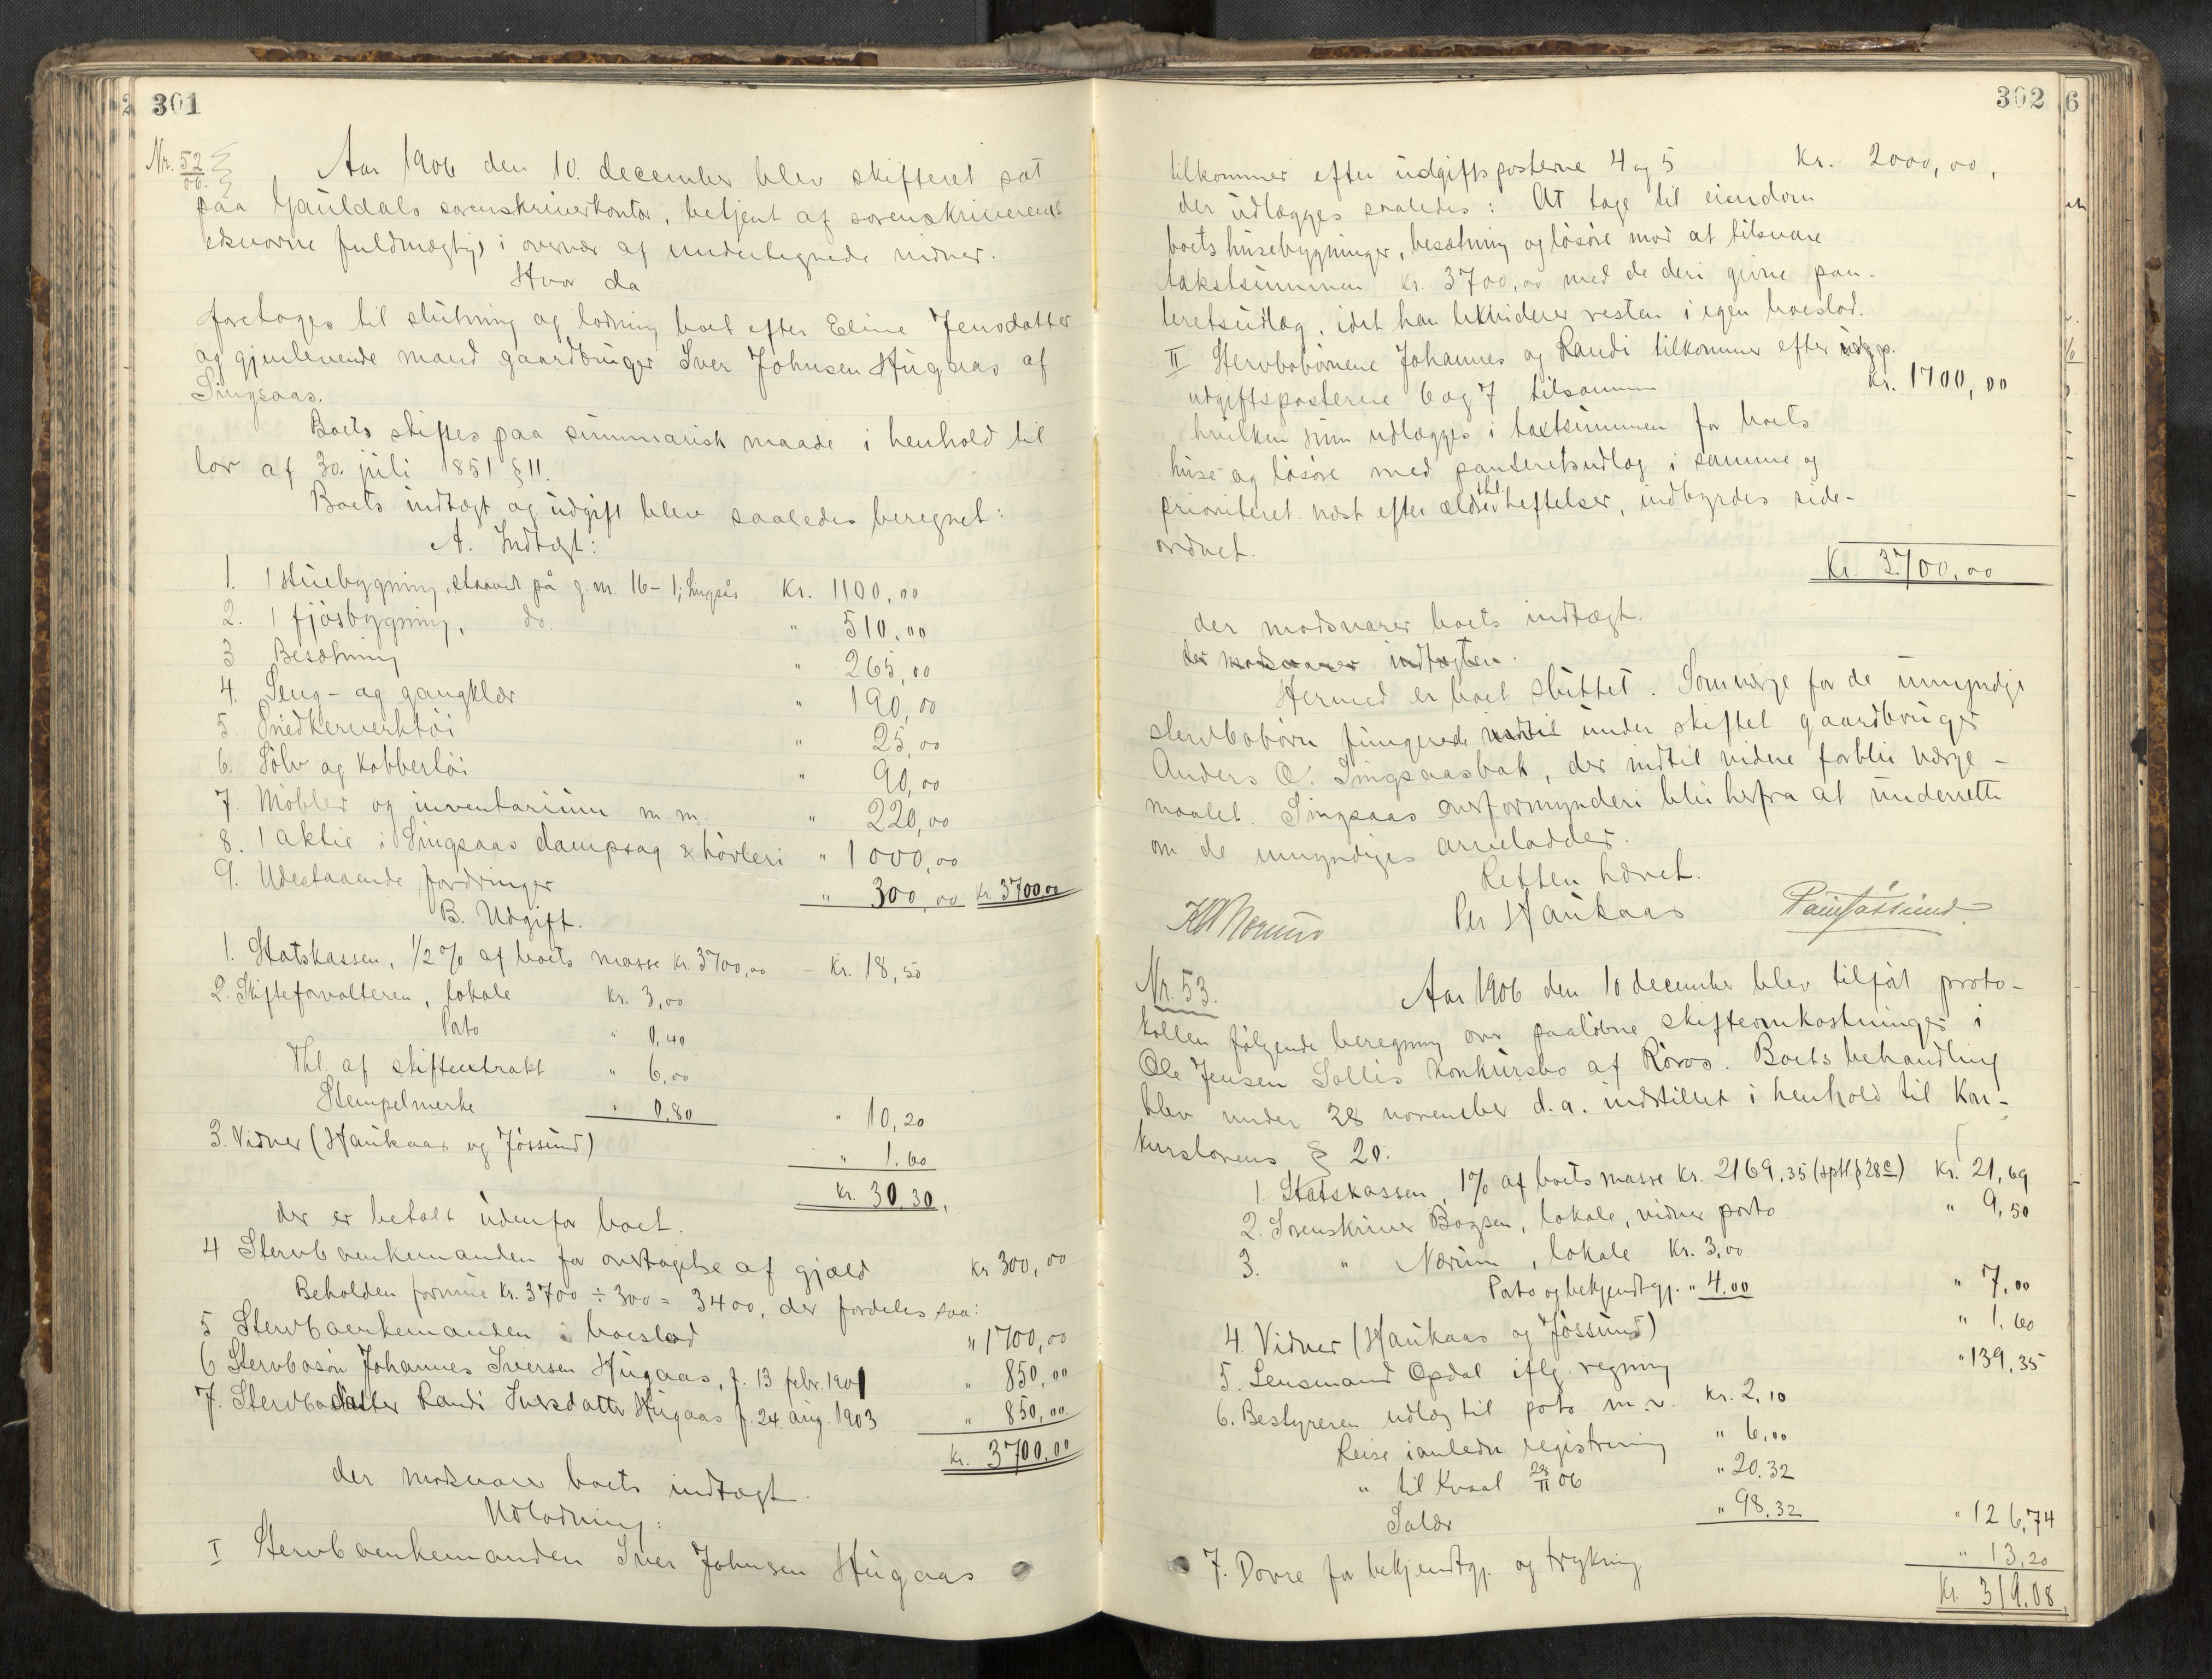 301
Nr. 52/06.
Aar 1906 den 10. december blev skifteret sat
paa Gauldals sorenskriverkontor, betjent af sorenskriverens
edsvorne fuldmægtig i overvær af undertegnede vidner.
Hvor da
foretoges til slutning og lodning boet efter Eline Jensdatter
og gjenlevende mand gaardbruger Iver Johnsen Haugaas af
Singsaas.
Boets skiftes paa summarisk maade i henhold til
lov af 30. juli 1851 § 11.
Boets indtægt og udgift blev saaledes beregnet:
A. Indtægt:
1. 1 stuebygning, staaende på g.nr. 16-1, Singsås Kr. 1100,00
2. 1 fjøsbygning, do. " 510,00
3 Besætning " 265,00
4. Seng- og gangklær " 190,00
5 Snedkerverktøi " 25,00
6. Sølv og kobbertøi " 90,00
7. Møbler og inventarium m.m. " 220,00
8. 1 aktie i Singsaas dampsag & høvleri " 1000,00
9. Udestaaende fordringer " 300,00 kr. 3700,00
B. Udgift.
1. Statskassen, 1/2 % af boets masse kr. 3700,00 - Kr. 18,50
2. Skifteforvalteren, lokale Kr. 3,00
Porto " 0,40
Thl. af skifteextrakt " 6,00
Stempelmerke " 0,80 " 10,20
3. Vidner (Haukaas og Jøssund) " 1.60
Kr. 30,30,
der er betalt udenfor boet.
4 Stervboenkemanden for overtagelse af gjæld kr 300,00
Beholden formue Kr. 3700 ÷ 300 = 3400, der fordeles saa:
5 Stervboenkemanden i boeslod " 1700,00
6 Stervbosøn Johannes Iversen Haugaas, f. 13 febr. 1901 " 850,00
7. Stervbodatter Randi Iversdatter Haugaas f. 24 aug. 1903 " 850,00
Kr. 3700,00
der modsvarer boets indtægt.
Udlodning:
I Stervboenkemanden Iver Johnsen Haugaas
302
tilkommer efter udgiftsposterne 4 og 5 Kr. 2000,00,
der udlægges saaledes: At tage til eiendom
boets husebygninger, besætning og løsøre mod at tilsvare
takstsummen kr. 3700,00 med de deri givne pan-
teretsudlæg, idet han likviderer resten i egen boeslod.
II Stervbobørnene Johannes og Randi tilkommer efter
udgiftsposterne 6 og 7 tilsammen Kr. 1700,00
hvilken sum udlægges i taxtsummen for boets
huse og løsøre med panteretsudlæg i samme og
prioriteret næst efter ældre thl heftelser, indbyrdes side-
ordnet.
Kr. 3700,00
der modsvarer boets indtægt.
der modsvarer indtægten.
Hermed er boet sluttet. Som værge for de umyndige
stervbobørn fungerede indtil under skiftet gaardbruger
Anders O. Singsaasbak, der indtil videre forblir værge-
maalet. Singsaas overformynderi blir herfra at underrette
om de umyndiges arvelodder.
Retten hævet.
Per Haukaas
Nr. 53.
Aar 1906 den 10 december blev tilført proto-
kollen følgende beregning over paaløbne skifteomkostninger i
Ole Jensen Sollis konkursbo af Røros. Boets behandling
blev under 28 november d.a. indstillet i henhold til Kon-
kurslovens § 20.
1. Statskassen, 1% af boets masse kr. 2169,35 (sptl. § 28 c) Kr. 21,69
2. Sorenskriver Bogsen, lokale, vidner porto " 9,50
3. " Nærum, lokale Kr. 3,00
Porto og bekjendtgj. " 4.00 " 7,00
4. Vidner (Haukaas og Jøssund) " 1.60
5. Lensmand Opdal iflg. regning " 139,35
6. Bestyreren udlæg til porto m.v. Kr. 2,10
Reise i anledn registrering " 6,00
" til Kvaal 28/11 06 " 20.32
Salær " 98,32 " 126,74
7. Dovre for bekjendtgj. og trykning " 13,20
Kr. 319,08,